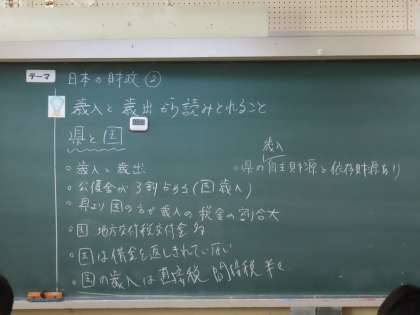 テーマ 日本の財政②
歳入と歳出から読みとれること
県と国
歳入
・歳入と歳出
・県の自主財源と依存財源あり
・公債金が3割占める(国 歳入)
・県より国の方が歳入の税金の割合大
・国 地方交付税交付金
・国は借金を返しきれていない
・国の歳入は直接税 間接税 半々